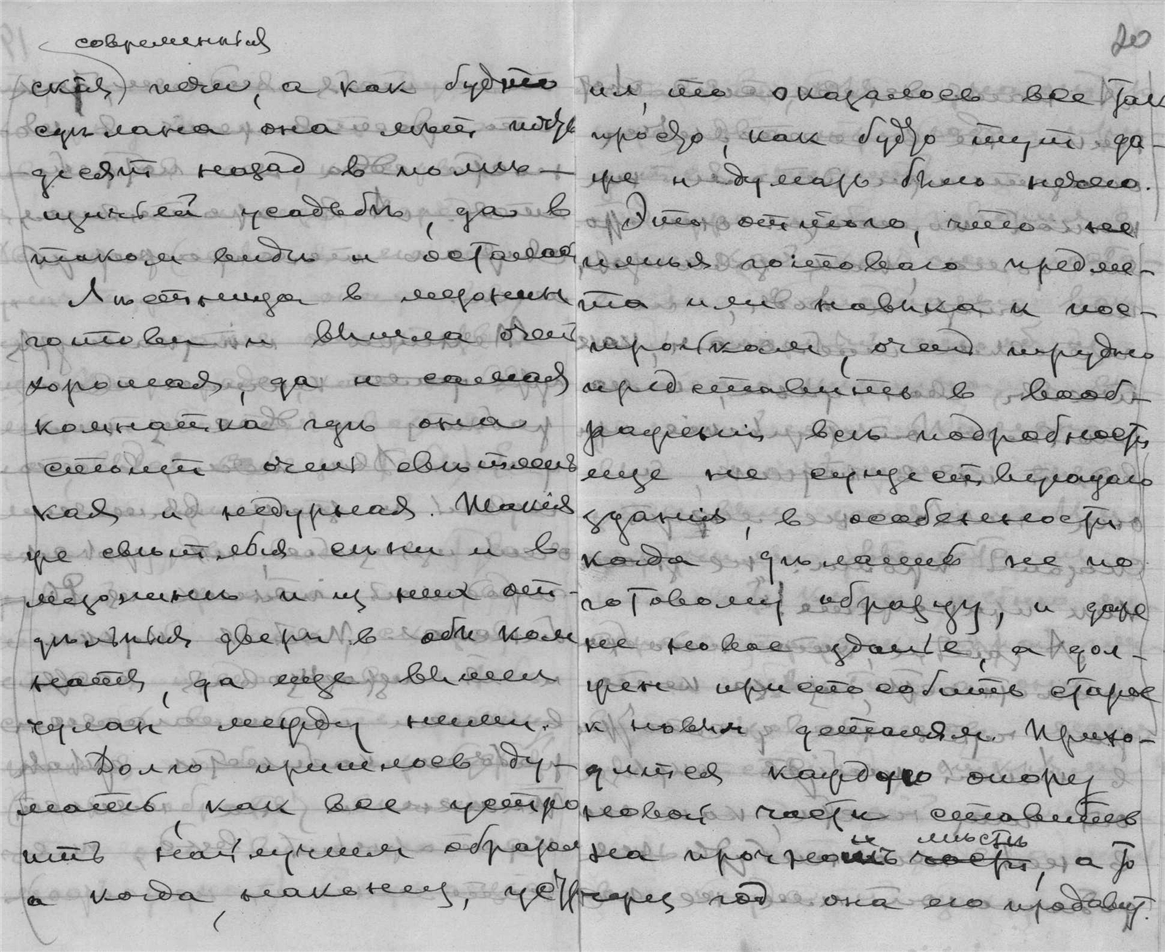 современныя
скія) печи, а как будто
сдѣлана она лѣт пять
десят назад в помѣ-
щичьей усадьбѣ, да в
таком видѣ и осталась
Лѣстница в мезонин
готова и вышла очень
хорошая, да и самая
комнатка гдѣ она
стоит очень свѣтлень
кая и недурная. Такія
же свѣтлыя сѣни и в
мезонинѣ и из них от-
дѣльныя двери в обѣ ком
наты, да еще вышел
чулан между ними.
Долго пришлось ду-
мать, как все устро
ить наилучшим образом
а когда, наконец, устро
20
ил, то оказалось все так
просто, как будто тут да-
же и думать было нечего.
Это оттого, что не
имѣя готоваго предме-
та или навыка к пос-
тройкам, очень трудно
представить в вооб-
ражении всѣ подробности
еще не существующаго
зданія, в особенности
когда дѣлаешь не по
готовому образцу, и даже
не новое зданіе, а дол-
жен приспособить старое
к новым деталям. Прихо-
дится каждую опору
новой части ставить
на прочной мѣсти части, а то
через год она его продавит.